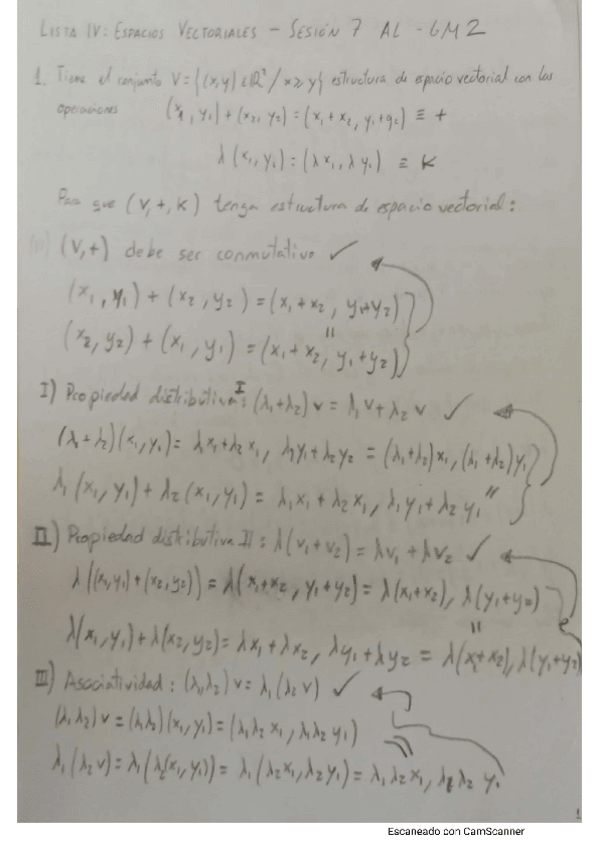 LISTA IV: ESPACIOS VECTORIALES - SESIÓN 7 AL - GM2
1. Tiene el conjunto V = {(x,y) ∈ ℝ² / x ≥ y} estructura de espacio vectorial con las
operaciones (x₁, y₁) + (x₂, y₂) = (x₁ + x₂, y₁ + y₂) ≡ +
λ (x₁, y₁) = (λ x₁, λ y₁) ≡ K
Para que (V, +, K) tenga estructura de espacio vectorial:
(V,+) debe ser conmutativo ✓
(x₁, y₁) + (x₂, y₂) = (x₁ + x₂, y₁ + y₂)
(x₂, y₂) + (x₁, y₁) = (x₁ + x₂, y₁ + y₂)
I) Propiedad distributiva I: (λ₁ + λ₂) v = λ₁ v + λ₂ v ✓
(λ₁ + λ₂)(x₁, y₁) = λ₁x₁ + λ₂x₁, λ₁y₁ + λ₂y₂ = (λ₁ + λ₂)x₁, (λ₁ + λ₂)y₁
λ₁ (x₁, y₁) + λ₂ (x₁, y₁) = λ₁x₁ + λ₂x₁, λ₁y₁ + λ₂y₁
II) Propiedad distributiva II: λ(v₁ + v₂) = λv₁ + λv₂ ✓
λ((x₁,y₁) + (x₂,y₂)) = λ(x₁+x₂, y₁+y₂) = λ(x₁+x₂), λ(y₁+y₂)
λ(x₁,y₁) + λ(x₂,y₂) = λx₁ + λx₂, λy₁ + λy₂ = λ(x₁+x₂), λ(y₁+y₂)
III) Asociatividad: (λ₁λ₂) v = λ₁(λ₂v) ✓
(λ₁λ₂)v = (λ₁λ₂)(x₁, y₁) = (λ₁λ₂x₁, λ₁λ₂y₁)
λ₁(λ₂v) = λ₁(λ₂(x₁,y₁)) = λ₁(λ₂x₁, λ₂y₁) = λ₁λ₂x₁, λ₁λ₂ y₁
1
Escaneado con CamScanner